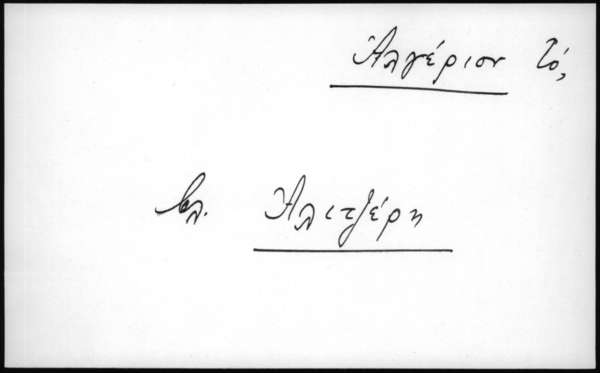 Ἀλγέριον τό,
βλ. Ἀλιτζέρη